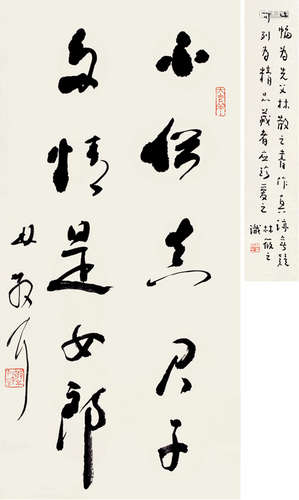 不俗真君子
多情是女郎
散耳
此幅为先父林散之书作真迹无疑
可列为精品藏者应珍爱之
林筱之
识